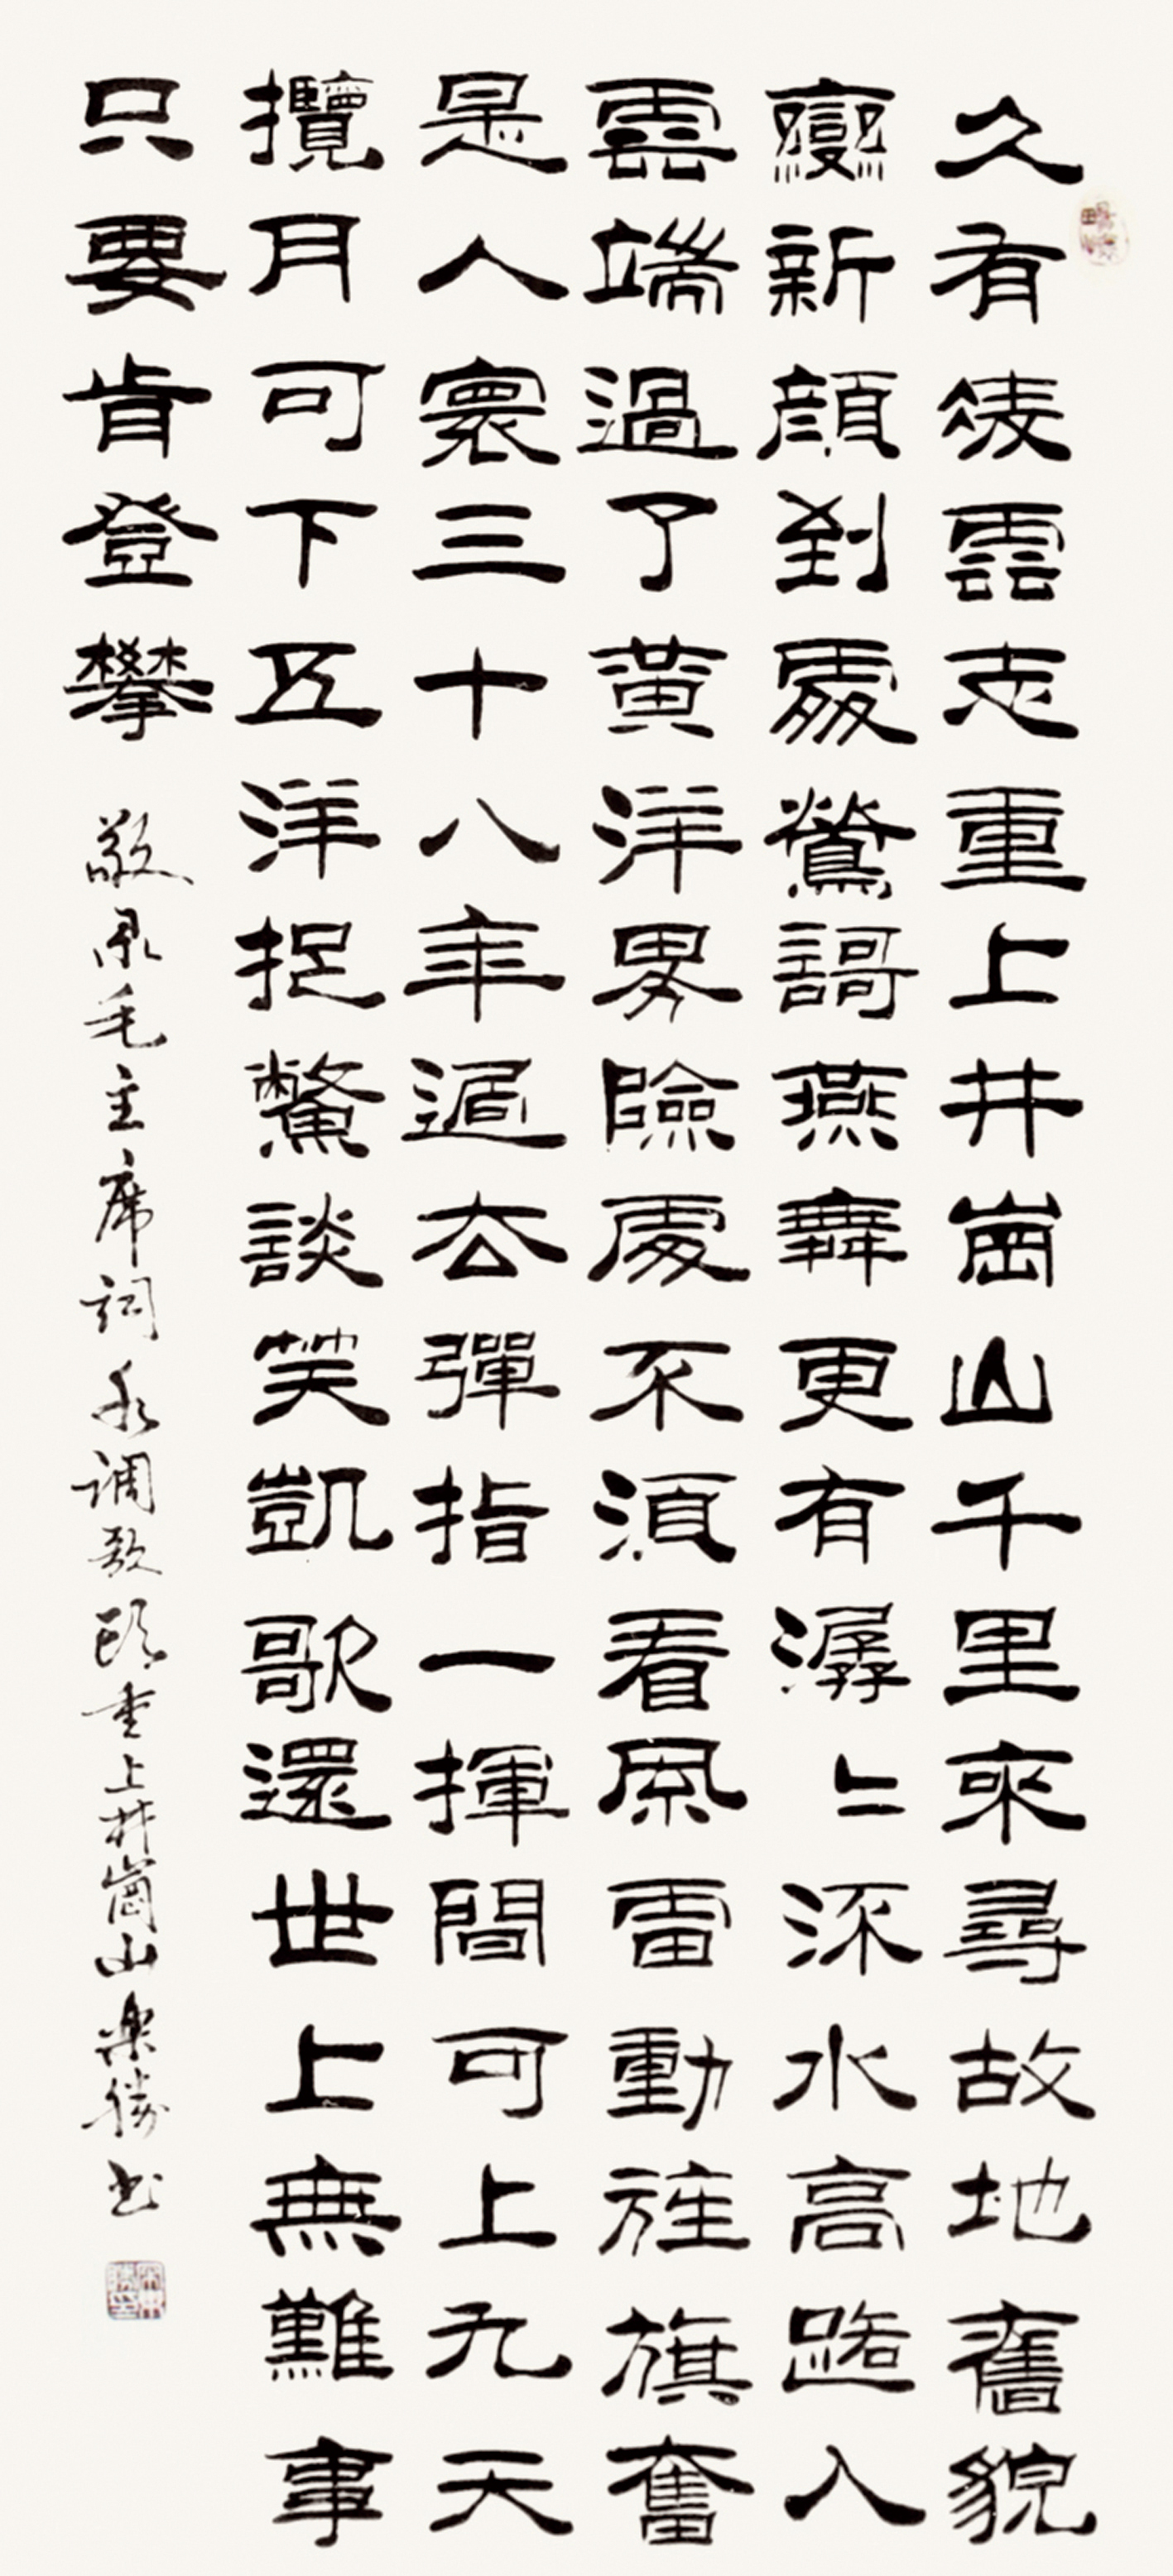 久有凌雲志重上井崗山千里來尋故地舊貌
變新顏到處鶯謌燕舞更有潺〻流水高路入
雲端過了黃洋界險處不須看風雷動旌旗奮
是人寰三十八年過去彈指一揮間可上九天
攬月可下五洋捉鱉談笑凱歌還世上無難事
只要肯登攀 敬录毛主席词水调歌頭重上井崗山樂勝书